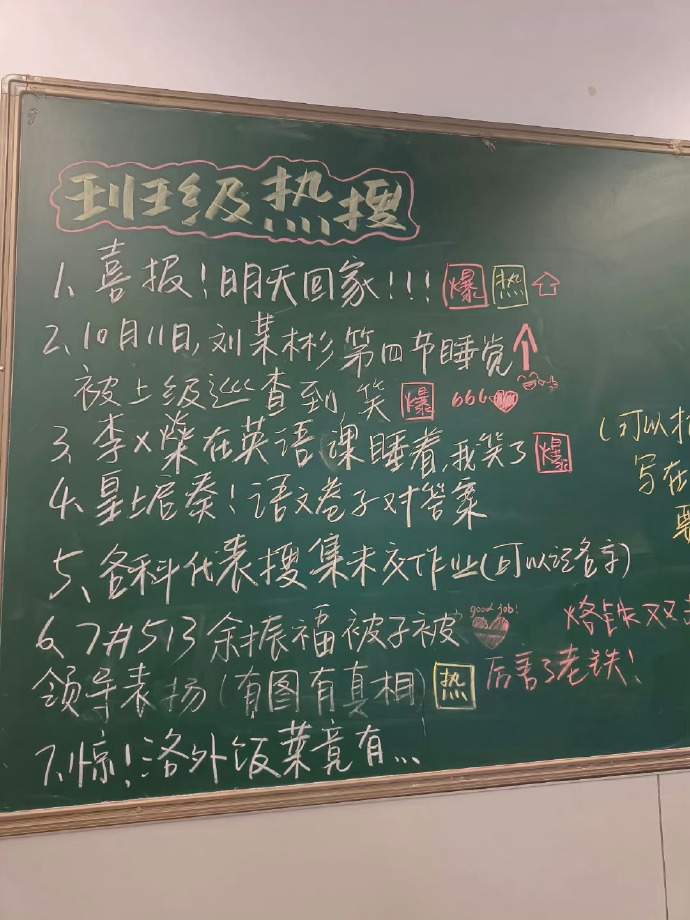 班级热搜
1、喜报！明天回家！！！ 爆 热
2、10月11日，刘某彬第四节睡觉
被上级巡查到 笑 爆 666
3、李x燊在英语课睡着，我笑了 爆
4、皇上启奏！语文卷子对答案
5、各科代表搜集未交作业(可以记名字)
6、7#513 余振福被子被 good job!
领导表扬(有图有真相) 热 厉害了老铁！
7、惊！洛外饭菜竟有...
(可以
写在
烙铁双